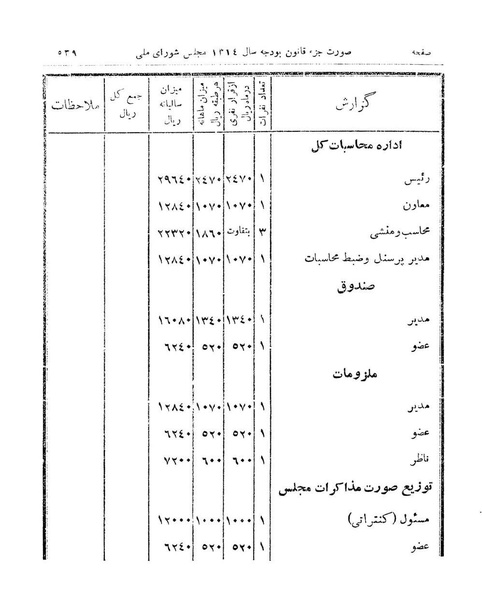 صفحه صورت جزء قانون بودجه سال ۱۳۱٤ مجلس شورای ملی ٥۳۹
گزارش تعداد نفرات از قرار نفری دوماه ریال میزان ماهانه هر طبقه ریال میزان سالیانه ریال جمع کل ریال ملاحظات
اداره محاسبات کل
رئیس ۱ ۲٤۷۰ ۲٤۷۰ ۲۹٦٤۰
معاون ۱ ۱۰۷۰ ۱۰۷۰ ۱۲۸٤۰
محاسب و منشی ۳ بتفاوت ۱۸٦۰ ۲۲۳۲۰
مدیر پرسنل وضبط محاسبات ۱ ۱۰۷۰ ۱۰۷۰ ۱۲۸٤۰
صندوق
مدیر ۱ ۱۳٤۰ ۱۳٤۰ ۱٦۰۸۰
عضو ۱ ٥۲۰ ٥۲۰ ٦۲٤۰
ملزومات
مدیر ۱ ۱۰۷۰ ۱۰۷۰ ۱۲۸٤۰
عضو ۱ ٥۲۰ ٥۲۰ ٦۲٤۰
ناظر ۱ ٦۰۰ ٦۰۰ ۷۲۰۰
توزیع صورت مذاکرات مجلس
مسئول (کنتراتی) ۱ ۱۰۰۰ ۱۰۰۰ ۱۲۰۰۰
عضو ۱ ٥۲۰ ٥۲۰ ٦۲٤۰